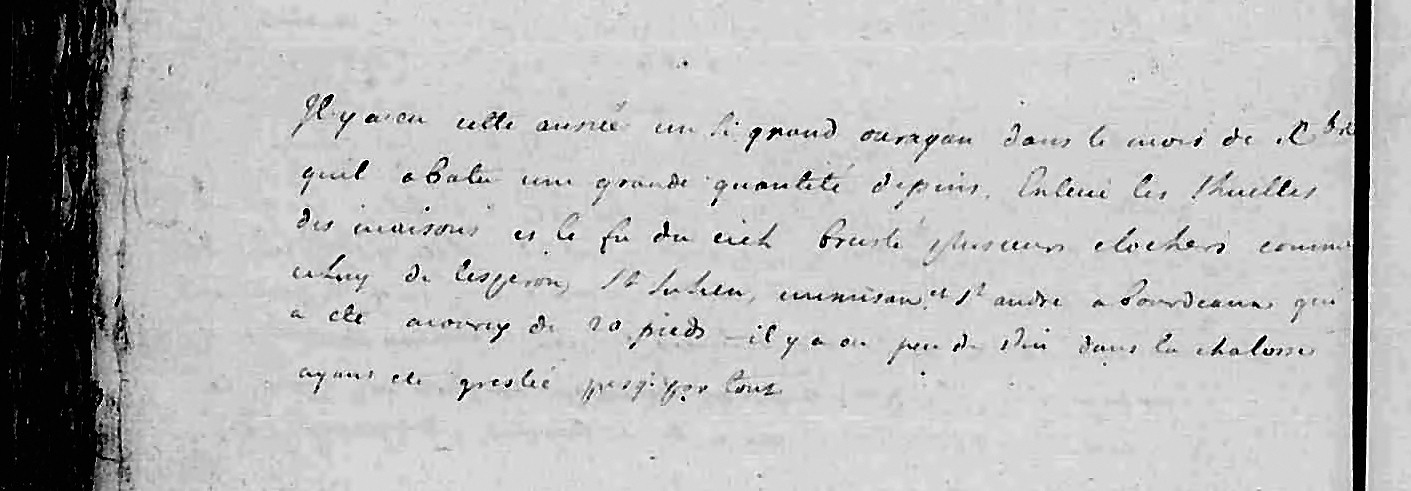 Il y a eu cette année un si grand ouragan dans le mois de Xbre
quil abatu une grande quantité de pins, Enlevé les thuilles
des maisons et le fu du ciel bruslé plusieurs clochers comme
celuy de lesperon, St Julien, mimisan, et St andre a bourdeaux qui
a eté acourcy de 20 pieds - il y a eu peu de vin dans la chalosse
ayant eté greslé presque par tout